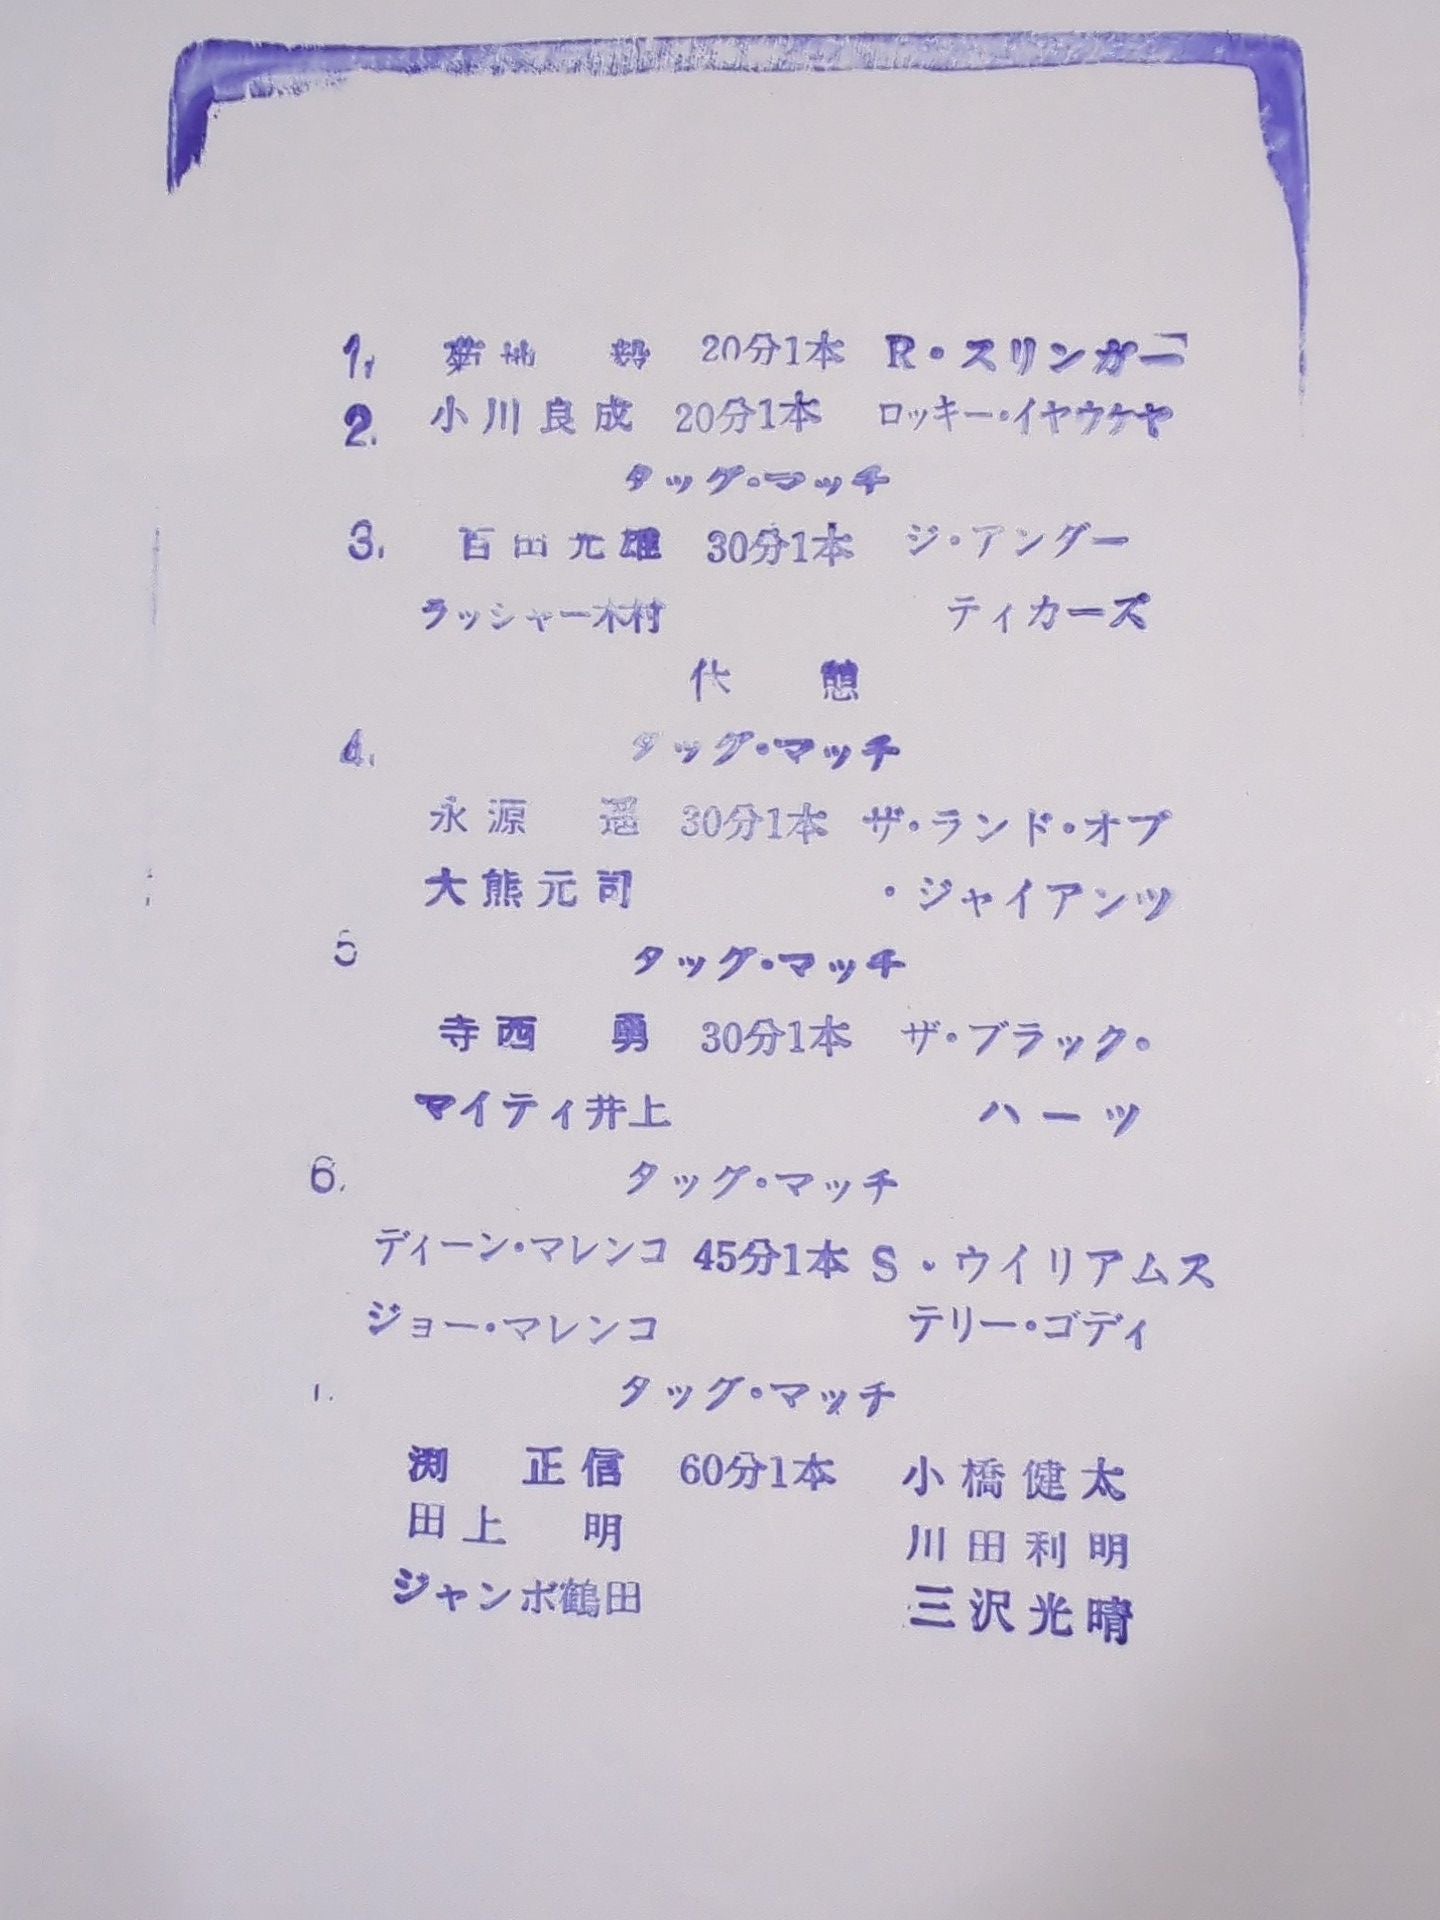 1. 菊地 毅 20分1本 R・スリンガー
2. 小川良成 20分1本 ロッキー・イヤウケヤ
タッグ・マッチ
3. 百田光雄 30分1本 ジ・アンダー
ラッシャー木村 ティカーズ
休 憩
4. タッグ・マッチ
永源 遥 30分1本 ザ・ランド・オブ
大熊元司 ・ジャイアンツ
5 タッグ・マッチ
寺西 勇 30分1本 ザ・ブラック・
マイティ井上 ハーツ
6. タッグ・マッチ
ディーン・マレンコ 45分1本 S・ウイリアムス
ジョー・マレンコ テリー・ゴディ
タッグ・マッチ
渕 正信 60分1本 小橋健太
田上 明 川田利明
ジャンボ鶴田 三沢光晴